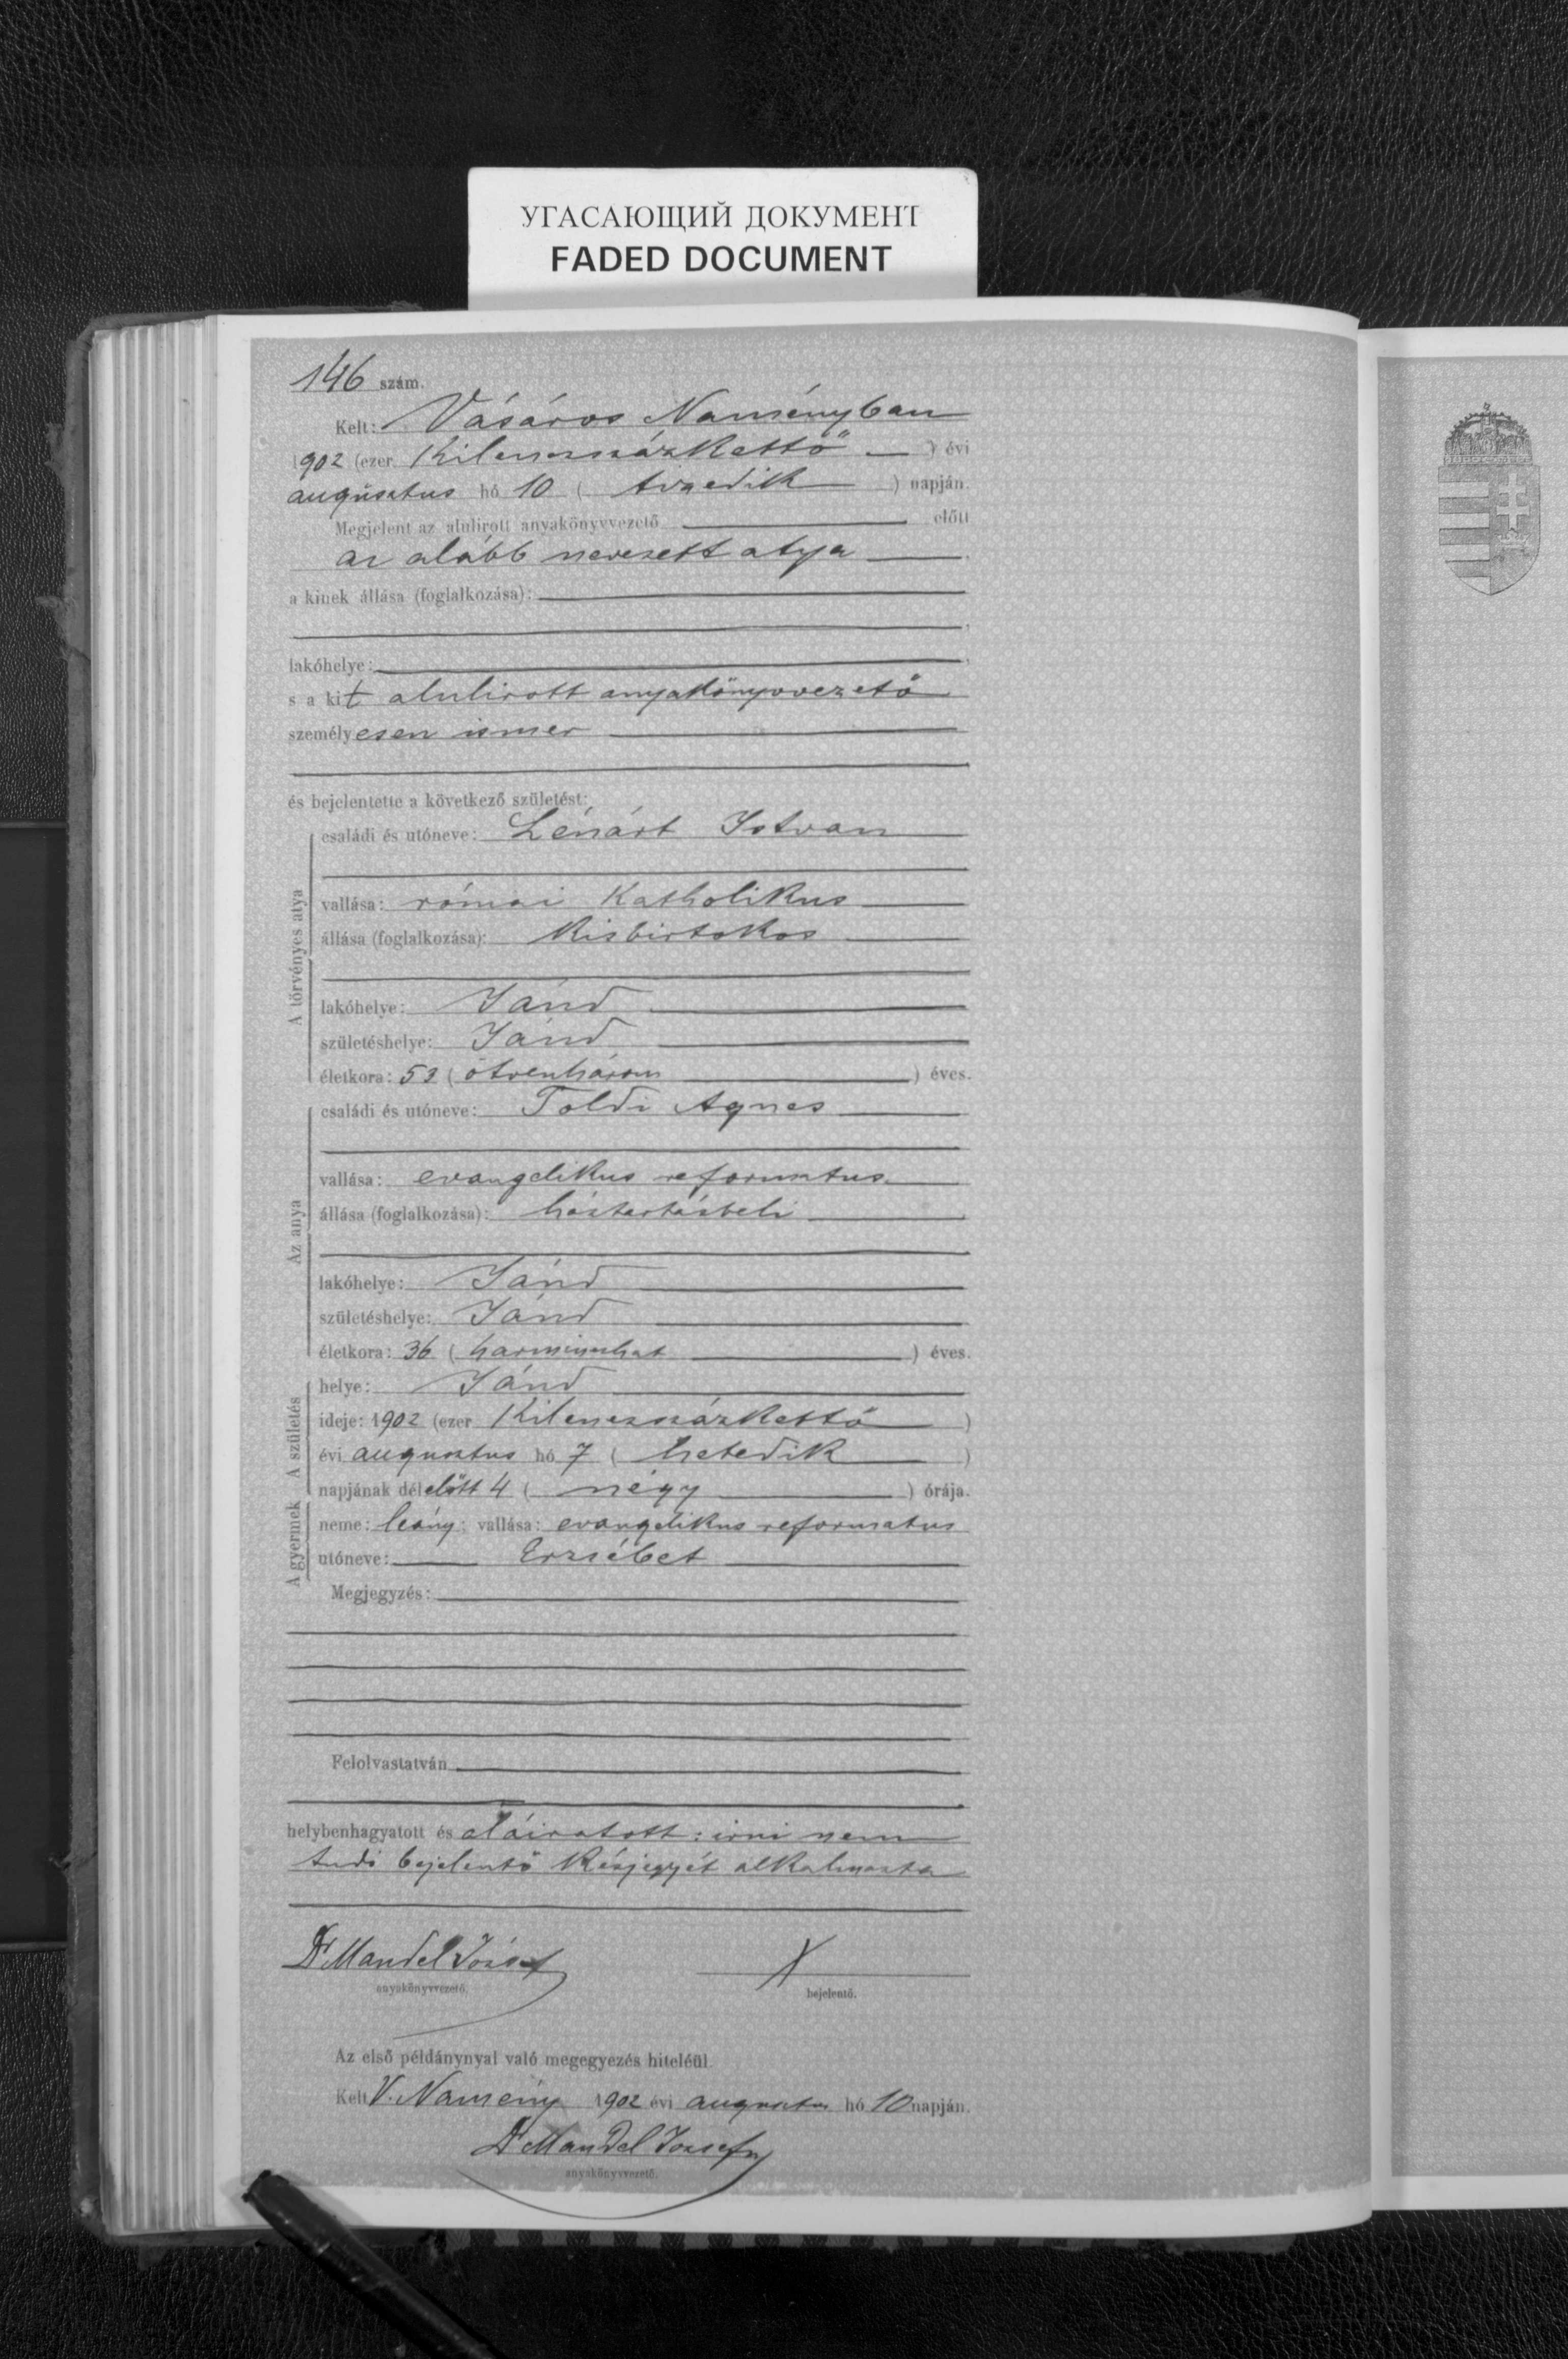 УГАСАЮЩИЙ ДОКУМЕНТ
FADED DOCUMENT
146 szám.
Kelt: Vásáros Naményban
1902 (ezer Kilenczszázkettő ) évi
augusztus hó 10 ( tizedik ) napján.
Megjelent az alulirott anyakönyvvezető előtt
az alább nevezett atya
a kinek állása (foglalkozása):
lakóhelye:
s a kit alulirott anyakönyvvezető
személyesen ismer
és bejelentette a következő születést:
A törvényes atya
családi és utóneve: Lénárt Istvan
vallása: római Katholikus
állása (foglalkozása): Kisbirtokos
lakóhelye: Jánd
születéshelye: Jánd
életkora: 53 ( ötvenhárom ) éves.
Az anya
családi és utóneve: Toldi Agnes
vallása: evangelikus reformatus
állása (foglalkozása): háztartásbeli
lakóhelye: Jánd
születéshelye: Jánd
életkora: 36 ( harminczhat ) éves.
A születés
helye: Jánd
ideje: 1902 (ezer Kilenczszázkettő )
évi augusztus hó 7 ( hetedik )
napjának délelőtt 4 ( négy ) órája.
A gyermek
neme: leány; vallása: evangelikus reformatus
utóneve: Erzsébet
Megjegyzés:
Felolvastatván
helybenhagyatott és aláiratott; irni nem
tudó bejelentő Kézjegyét alkalmazta
Dr Mandel József X
anyakönyvvezető. bejelentő.
Az első példánynyal való megegyezés hiteléül.
Kelt V. Namény 1902 évi augusztus hó 10 napján.
Dr Mandel József
anyakönyvvezető.